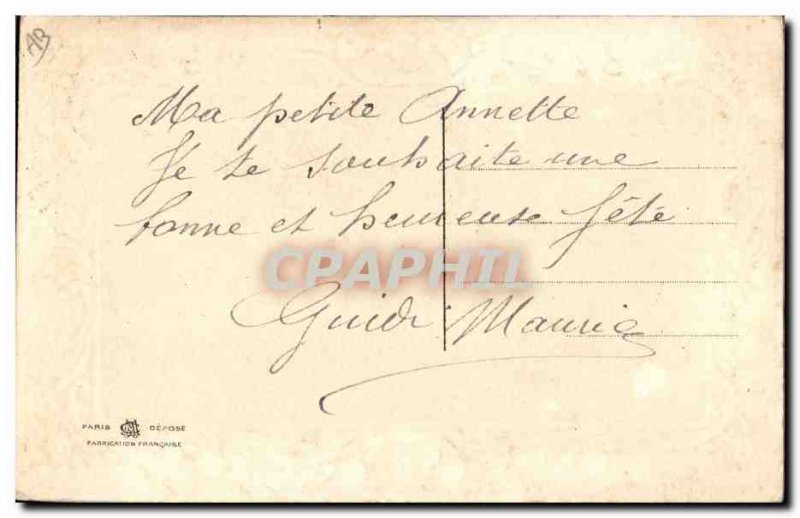 AB
Ma petite Annette
Je te souhaite une
bonne et heureuse fête
CPAPHIL
Guidi Maurice
PARIS DÉPOSÉ
FABRICATION FRANÇAISE